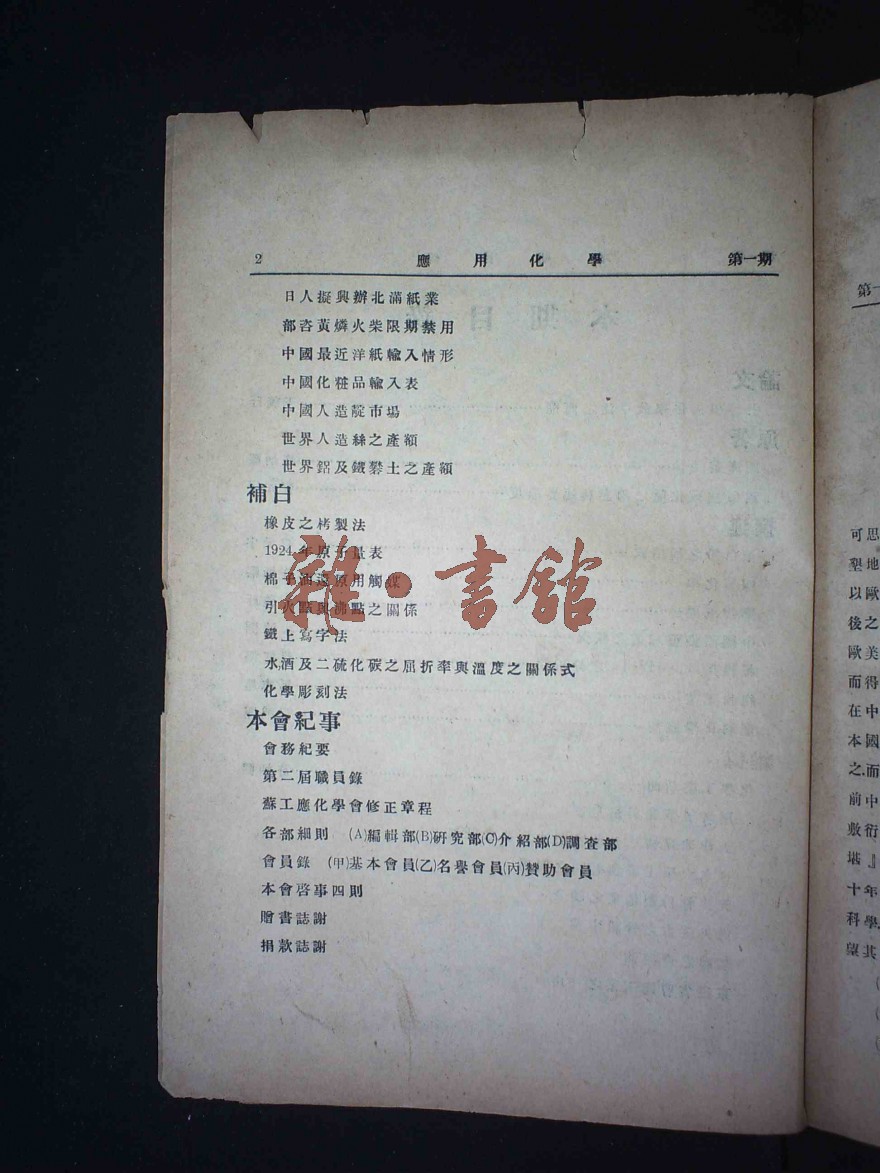 2 應用化學 第一期
日人擬興辦北滿紙業
部咨黃燐火柴限期禁用
中國最近洋紙輸入情形
中國化粧品輸入表
中國人造靛市場
世界人造絲之產額
世界鋁及鐵礬土之產額
補白
橡皮之栲製法
1924年原子量表
棉子油還原用觸媒
引火點與沸點之關係
鐵上寫字法
水酒及二硫化碳之屈折率與溫度之關係式
化學彫刻法
本會紀事
會務紀要
第二屆職員錄
蘇工應化學會修正章程
各部細則 (A)編輯部(B)研究部(C)介紹部(D)調查部
會員錄 (甲)基本會員(乙)名譽會員(丙)贊助會員
本會啓事四則
贈書誌謝
捐款誌謝
雜·書館
第一
可思
墾地
以歐
後之
歐美
而得
在中
本國
之.而
前中
敷衍
堪.』
十年
科學.
望其